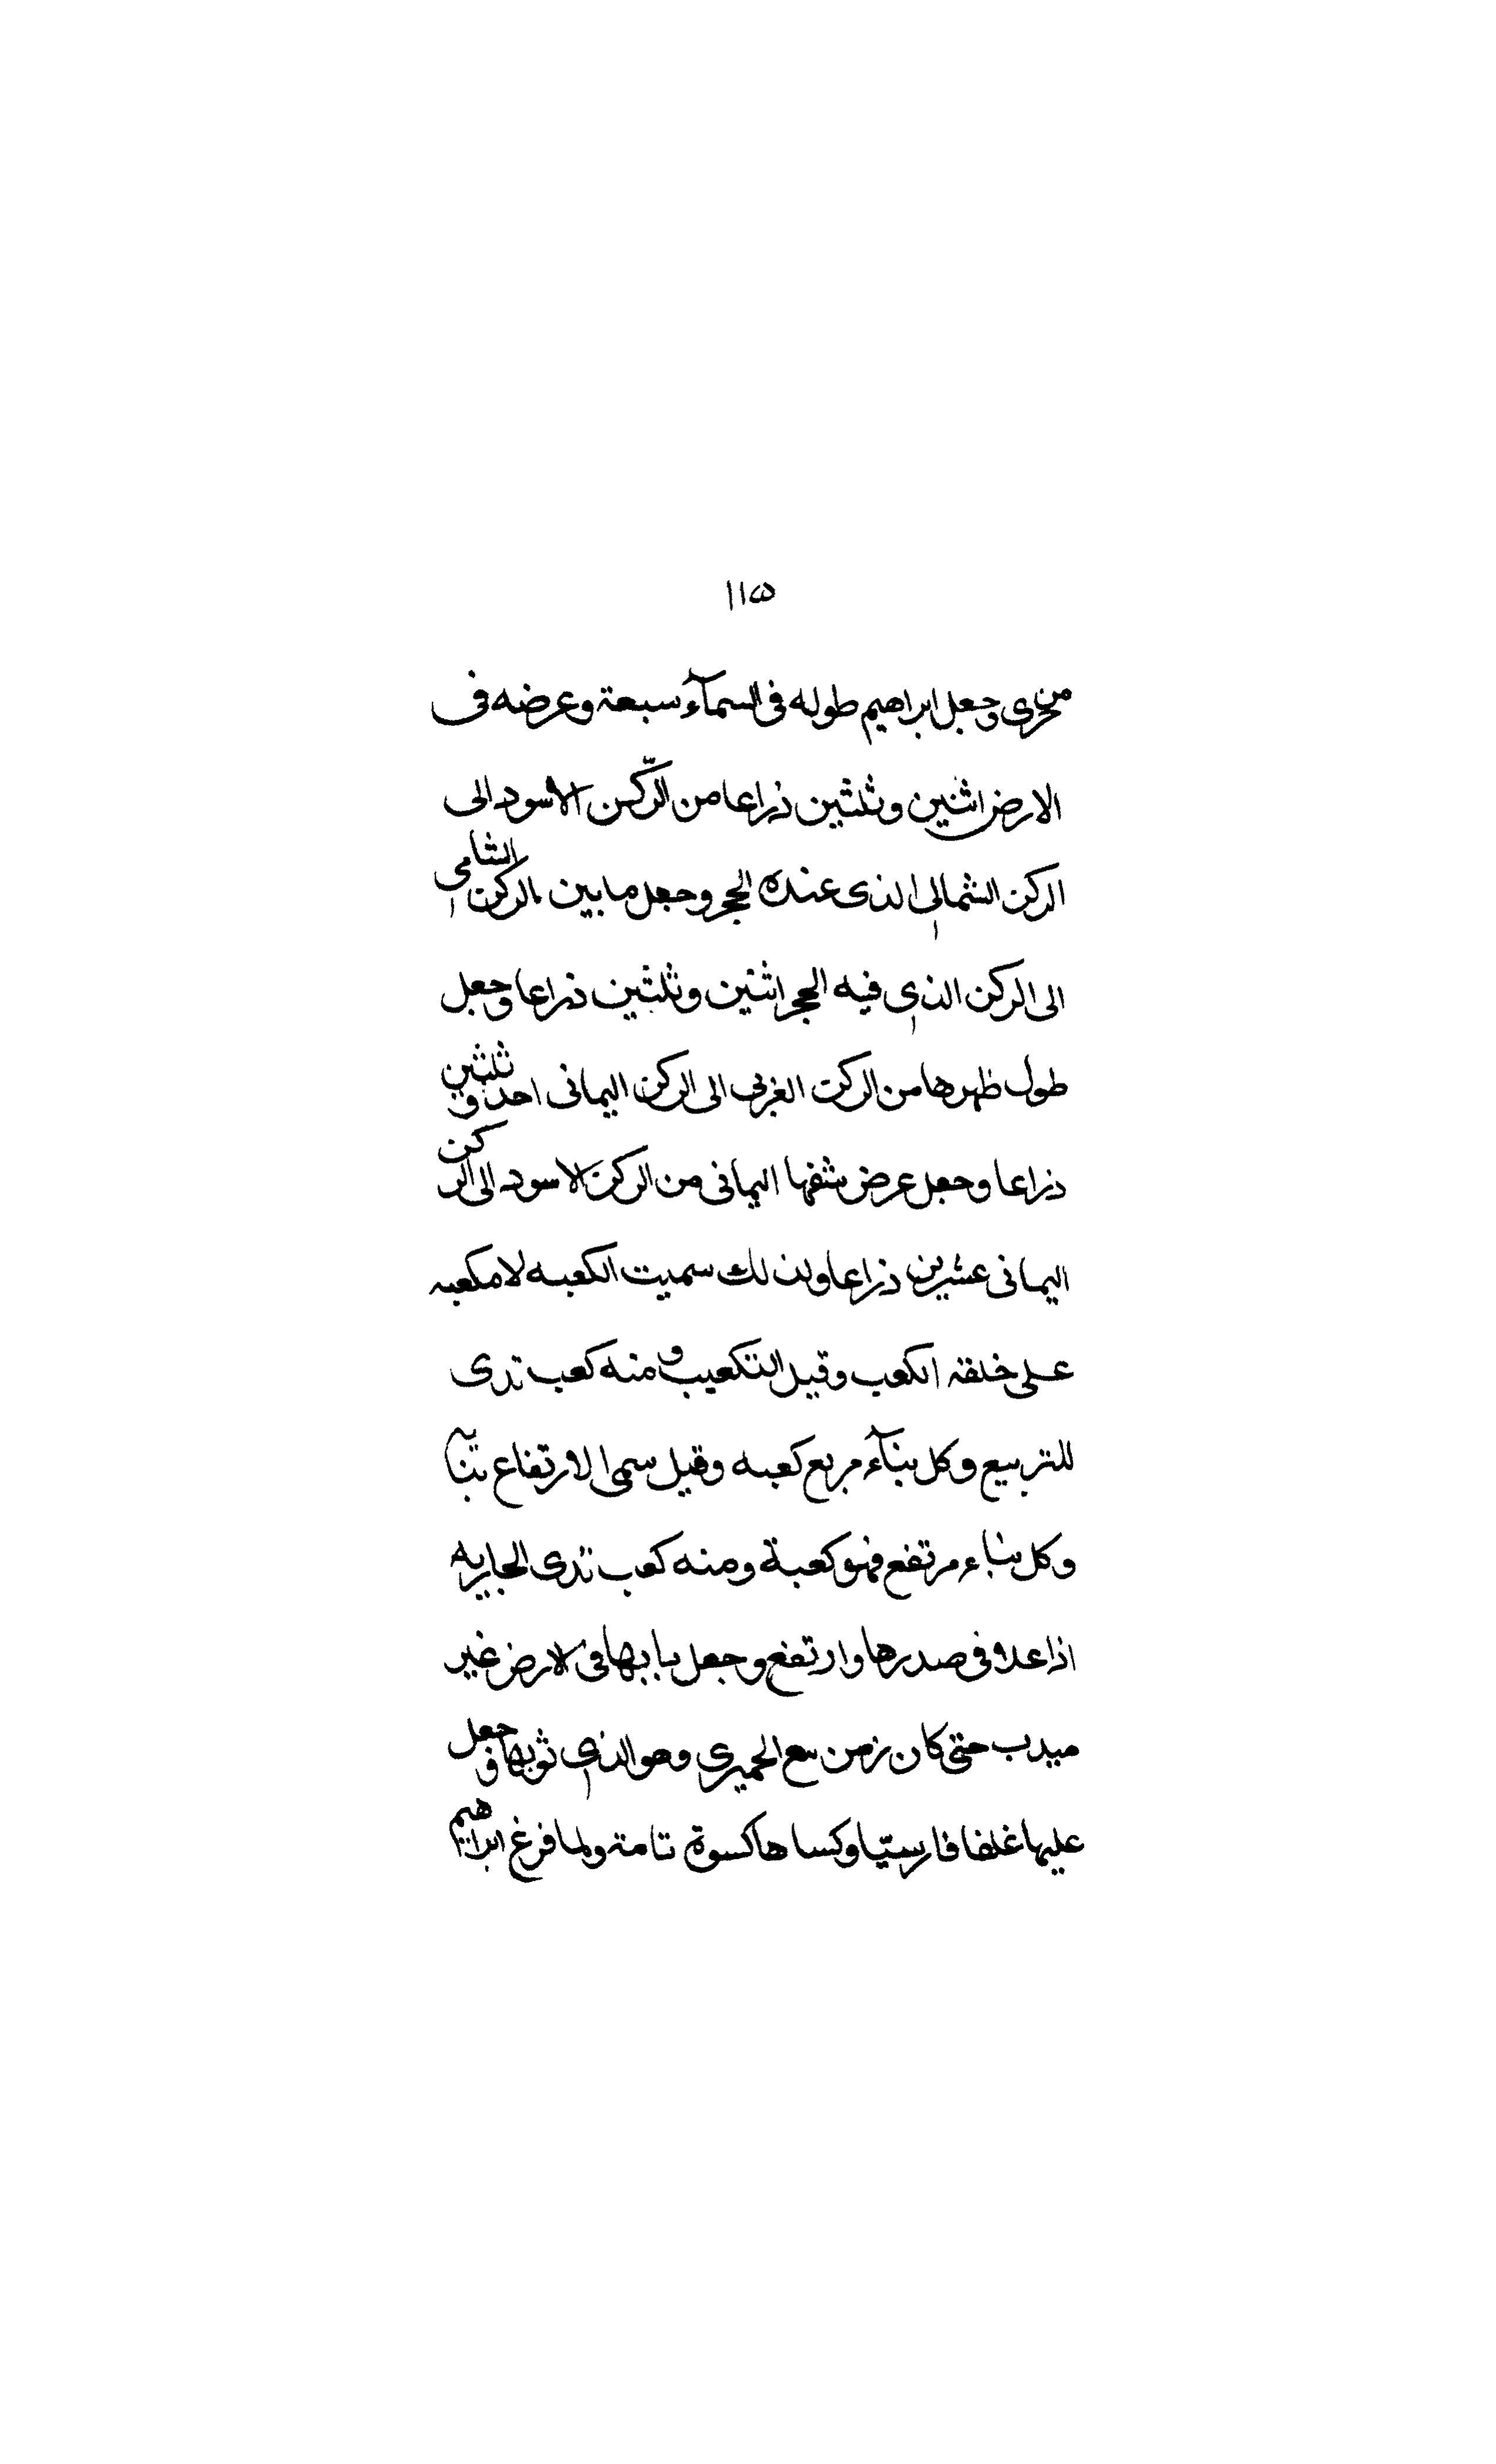 ١١٥
من حرى وجعل ابراهيم طوله فى السمآء سبعة وعرضه فى
الارض اثنين وثلثين ذراعا من الرّكن الاسود الى
الركن الشمالى الذى عنده الحجر وجعل ما بين الركن الشامى
الى الركن الذى فيه الحجر اثنين وثلثين ذراعا وجعل
طول ظهرها من الركن الغربى الى الركن اليمانى احد وثلثين
ذراعا وجعل عرض شقها اليمانى من الركن الاسود الى الركن
اليمانى عشرين ذراعا ولذلك سميت الكعبه لا مكعبه
على خلقة الكعب وقيل التكعيب ومنه كعب ثدى
للتربيع وكل بنآء مربع كعبه وقيل سمى الارتفاع بنآ
وكل بناء مرتفع فهو كعبة ومنه كعب ثدى الجاريه
اذا علا فى صدرها وارتفع وجعل بابها فى الارض غير
مبوب حتى كان زمن تبع الحميرى وهو الذى ثوبها وجعل
عليها غلقا فارسيّا وكساها كسوة تامة ولما فرغ ابراهيم